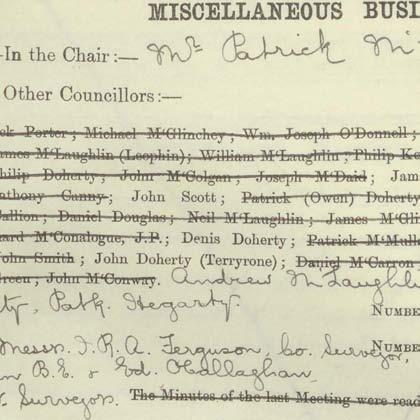 MISCELLANEOUS BUSI
In the Chair:— Mr. Patrick M'
Other Councillors:—
ck Porter; Michael M'Glinchey; Wm. Joseph O'Donnell;
ames M'Laughlin (Leophin); William M'Laughlin; Philip Ke
hilip Doherty; John M'Colgan; Joseph M'Daid; Jam
nthony Canny; John Scott; Patrick (Owen) Doherty
allion; Daniel Douglas; Neil M'Laughlin; James M'Gli
ard M'Conalogue, J.P.; Denis Doherty; Patrick M'Mull
John Smith; John Doherty (Terryrone); Daniel M'Carron,
green; John M'Conway. Andrew McLaughli
ty, Patk. Hegarty.
NUMBE
Messrs. J. R. A. Ferguson, Co. Surveyor, NUMBE
B.E. & Ed. O'Callaghan,
Surveyors. The Minutes of the last Meeting were read